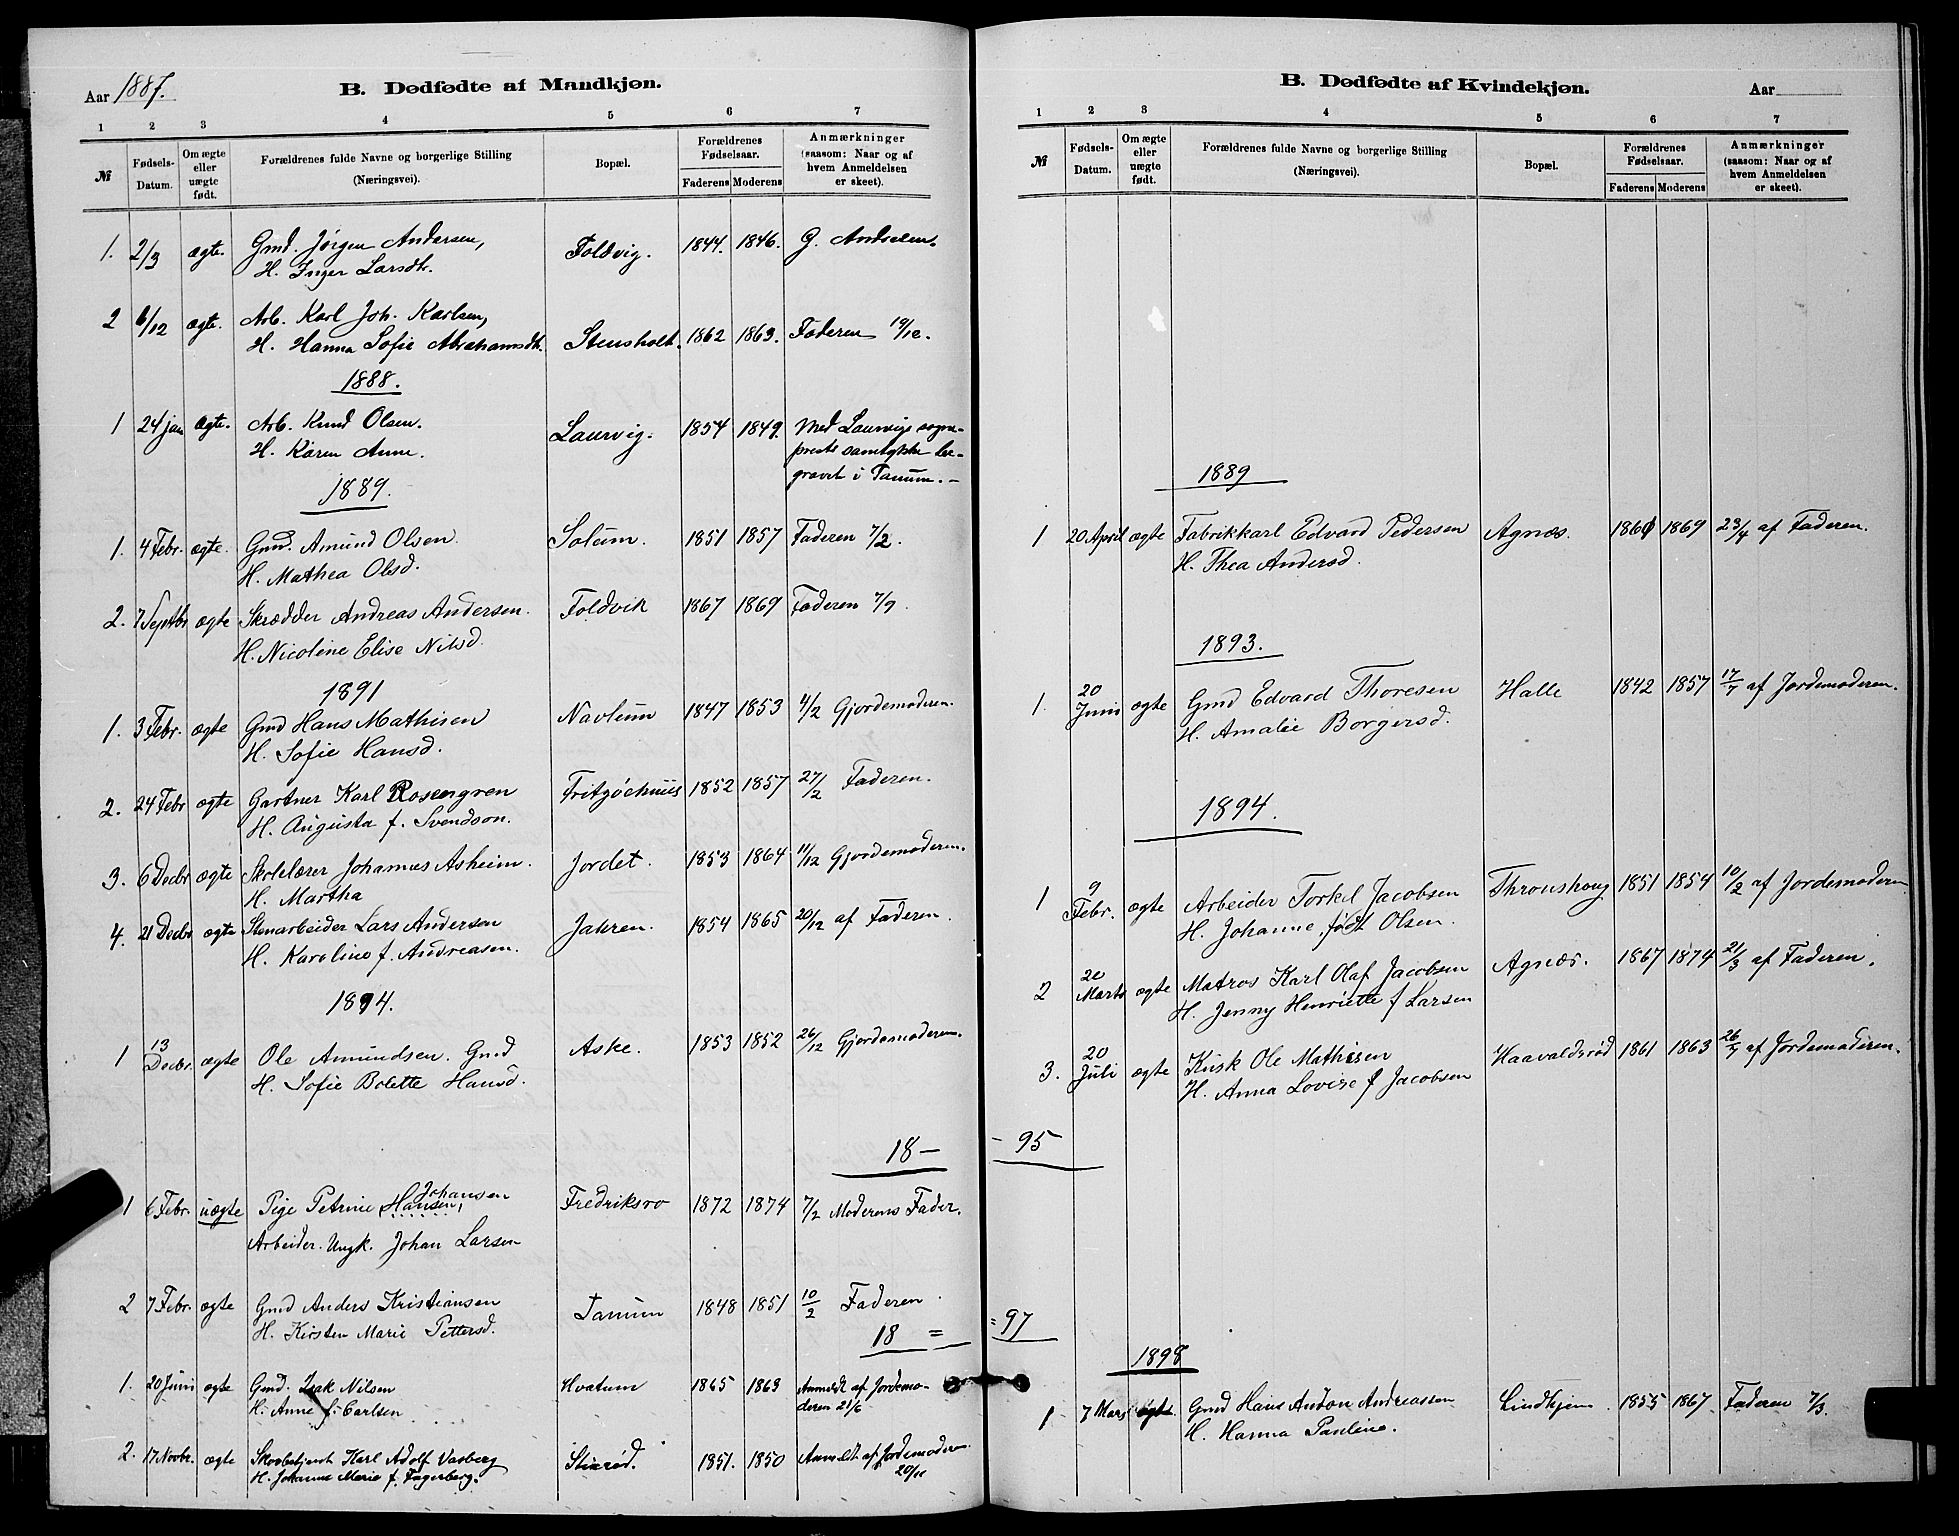 Aar 1887.
B. Dødfødte af Mandkjøn.
1 2 3 4 5 6 7
№ Fødsels-Datum. Om ægte eller uægte født. Forældrenes fulde Navne og borgerlige Stilling (Næringsvei). Bopæl. Forældrenes Fødselsaar. Faderens Moderens Anmærkninger (saasom: Naar og af hvem Anmeldelsen er skeet).
1. 2/3 ægte. Gmd. Jørgen Andersen, Foldvig. 1844. 1846. G. Andersen.
H. Inger Larsdtr.
2 6/12 ægte. Arb. Karl Joh. Karlsen,
H. Hanna Sofie Abrahamsdtr. Stensholt. 1862 1863. Faderen 19/12.
1888.
1 24 jan ægte. Arb. Knud Olsen. Laurvig. 1854 1849. Med Laurvigs sogne-
H. Karen Anne. prests samtykke be-
gravet i Tanum. -
1889.
1. 4 Febr. ægte. Gmd. Amund Olsen. Solum. 1851 1857 Faderen 7/2.
H. Mathea Olsd.
2. 7 Septbr ægte Skrædder Andreas Andersen. Foldvik 1867 1869 Faderen 7/9.
H. Nicoline Elise Nilsd.
1891
1. 3 Febr. ægte Gmd Hans Mathisen Navlum 1847 1853 4/2 Gjordemoderen.
H. Sofie Hansd.
2. 24 Febr ægte Gartner Karl Rosengren Fritzöehuus 1852 1857 27/2 Faderen.
H. Augusta f. Svendson.
3. 6 Decbr ægte Skolelærer Johannes Asheim. Jordet. 1853 1864 11/12 Gjordemoderen.
H. Martha
4. 21 Decbr ægte Stenarbeider Lars Andersen Jahren. 1854 1865 20/12 af Faderen.
H. Karoline f. Andreasen.
1894.
1 13 Decbr. ægte Ole Amundsen. Gmd Aske. 1853 1852 26/12 Gjordemoderen.
H. Sofie Bolette Hansd.
18 -
1 6 Febr. uægte Pige Petrine Hansen, Johansen Fredriksro 1872 1874 7/2 Moderens Fader.
Arbeider. Ungk. Johan Larsen
2 7 Febr. ægte Gmd Anders Kristiansen Tanum 1848 1851 10/2 Faderen.
H. Kirsten Marie Pettersd.
18 =
1. 20 Juni ægte Gmd. Isak Nilsen Hvatum 1865 1863 Anmeldt af Jordemo-
H. Anne f. Carlsen deren 21/6
2. 17 Novbr. ægte Skovbetjent Karl Adolf Vasberg Stinrød. 1851. 1850 Anmeldt af Jordemoderen
H. Johanne Marie f. Fagerberg. 20/11
B. Dødfødte af Kvindekjøn.
Aar
1 2 3 4 5 6 7
№ Fødsels-Datum. Om ægte eller uægte født. Forældrenes fulde Navne og borgerlige Stilling (Næringsvei). Bopæl. Forældrenes Fødselsaar. Faderens Moderens Anmærkninger (saasom: Naar og af hvem Anmeldelsen er skeet).
1889
1 20 April ægte Fabrikkarl Edvard Pedersen Agnæs. 1861 1869 23/4 af Faderen.
H. Thea Andersd.
1893.
1. 20 Juni ægte Gmd Edvard Thoresen Halle 1842 1857 17/7 af Jordemoderen.
H. Amalie Borgersd.
1894.
1 9 Febr. ægte Arbeider Torkel Jacobsen Thronshoug 1851 1854 10/2 af Jordemoderen
H. Johanne, født Olsen.
2 20 Marts ægte Matros Karl Olaf Jacobsen Agnæs. 1867 1874 21/3 af Faderen.
H. Jenny Henriette f Larsen
3. 20 Juli ægte Kusk Ole Mathisen Haavaldsrød 1861 1863 26/7 af Jordemoderen.
H. Anna Lovise f Jacobsen
- 95
= 97
1898
1 7 Mars ægte Gmd Hans Anton Andreassen Lindhjem. 1855 1867 Faderen 7/3.
H. Hanna Pauline.